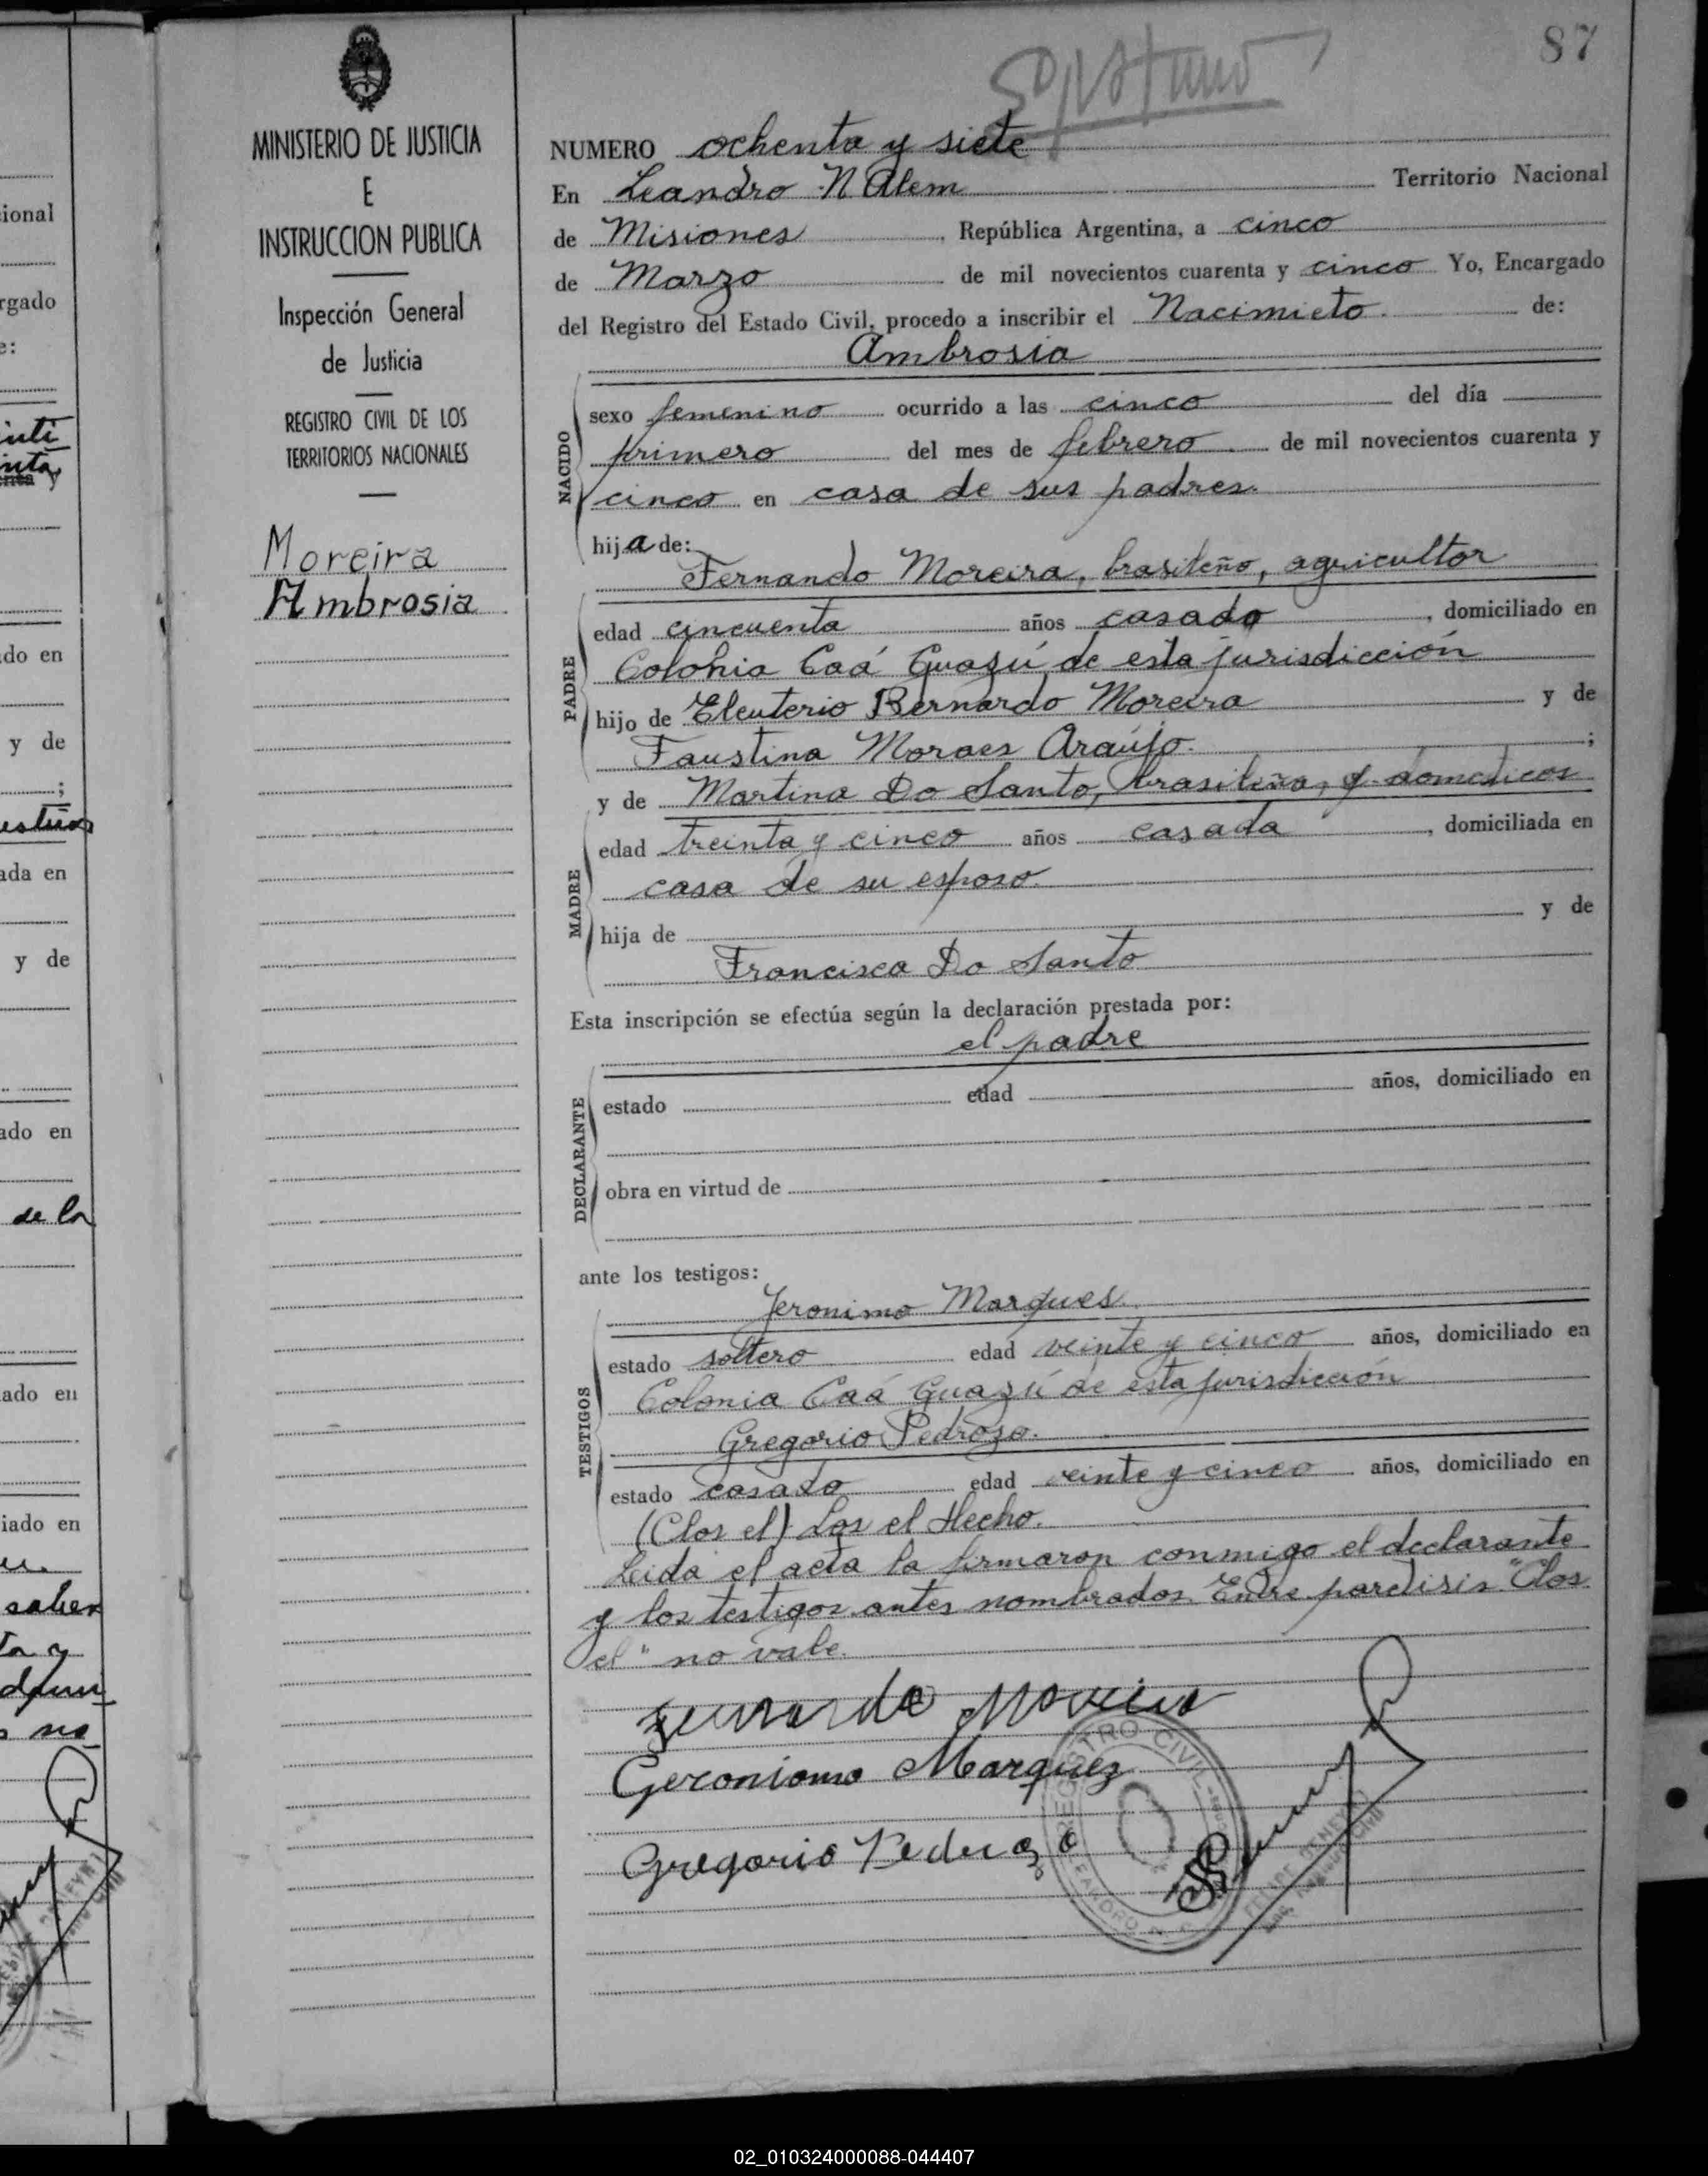 87
MINISTERIO DE JUSTICIA
E
INSTRUCCION PUBLICA
Inspección General
de Justicia
REGISTRO CIVIL DE LOS
TERRITORIOS NACIONALES
Moreira
Ambrosia
NUMERO ochenta y siete
En Leandro N Alem Territorio Nacional
de Misiones, República Argentina, a cinco
de Marzo de mil novecientos cuarenta y cinco Yo, Encargado
del Registro del Estado Civil, procedo a inscribir el Nacimieto. de:
Ambrosia
NACIDO
sexo femenino ocurrido a las cinco del día
primero del mes de febrero. de mil novecientos cuarenta y
cinco en casa de sus padres.
hija de:
Fernando Moreira, brasileño, agricultor
PADRE
edad cincuenta años casado, domiciliado en
Colonia Caá Guazú de esta jurisdicción
hijo de Eleuterio Bernardo Moreira y de
Faustina Moraes Araújo. ;
y de Martina Do Santo, brasileña, q. domesticos
MADRE
edad treinta y cinco años casada, domiciliada en
casa de su esposo.
hija de y de
Francisca Do Santo
Esta inscripción se efectúa según la declaración prestada por:
el padre
DECLARANTE
estado edad años, domiciliado en
obra en virtud de
ante los testigos:
Jeronimo Marques.
TESTIGOS
estado soltero edad veinte y cinco años, domiciliado en
Colonia Caá Guazú de esta jurisdicción
Gregorio Pedrozo.
estado casado edad veinte y cinco años, domiciliado en
(Clos el) Los el Hecho.
Leida el acta la firmaron conmigo el declarante
y los testigos antes nombrados. Entre paretisis "Clos
el" no vale.
Fernando Moreira
Geroniomo Marquez
Gregorio Pedrozo
REGISTRO CIVIL
LEANDRO N.
02_010324000088-044407